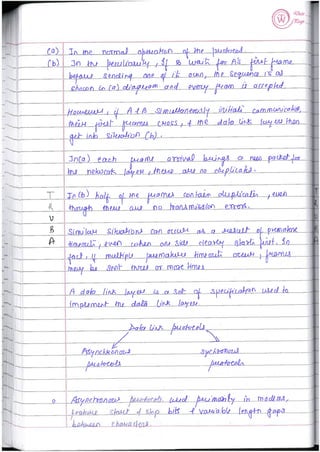 (a) In the normal operation of the protocol.
(b) In the peculiarity, if B waits for A's first frame
before sending one of its own, the sequence is as
shown in (a) diagram and every frame is accepted.
However, if A & B simultaneously initiate communication,
their first frames cross, & the data link layers then
get into situation (b).
In(a) each frame arrival brings a new packet for
the network layer, there are no duplicates.
In (b) half of the frames contain duplicates, even
though there are no transmission errors.
Similar situations can occur as a result of premature
timeouts, even when one side clearly starts first. So
fact, if multiple premature timeouts occur, frames
may be sent three or more times
A data link layer is a set of specification used to
implement the data link layer
Data Link protocols
Asynchronous sychronous
protocols protocols
Asynchronous protocols, used primarily in modems,
feature start & stop bits & variable length gaps
between characters.
T
R
U
B
A